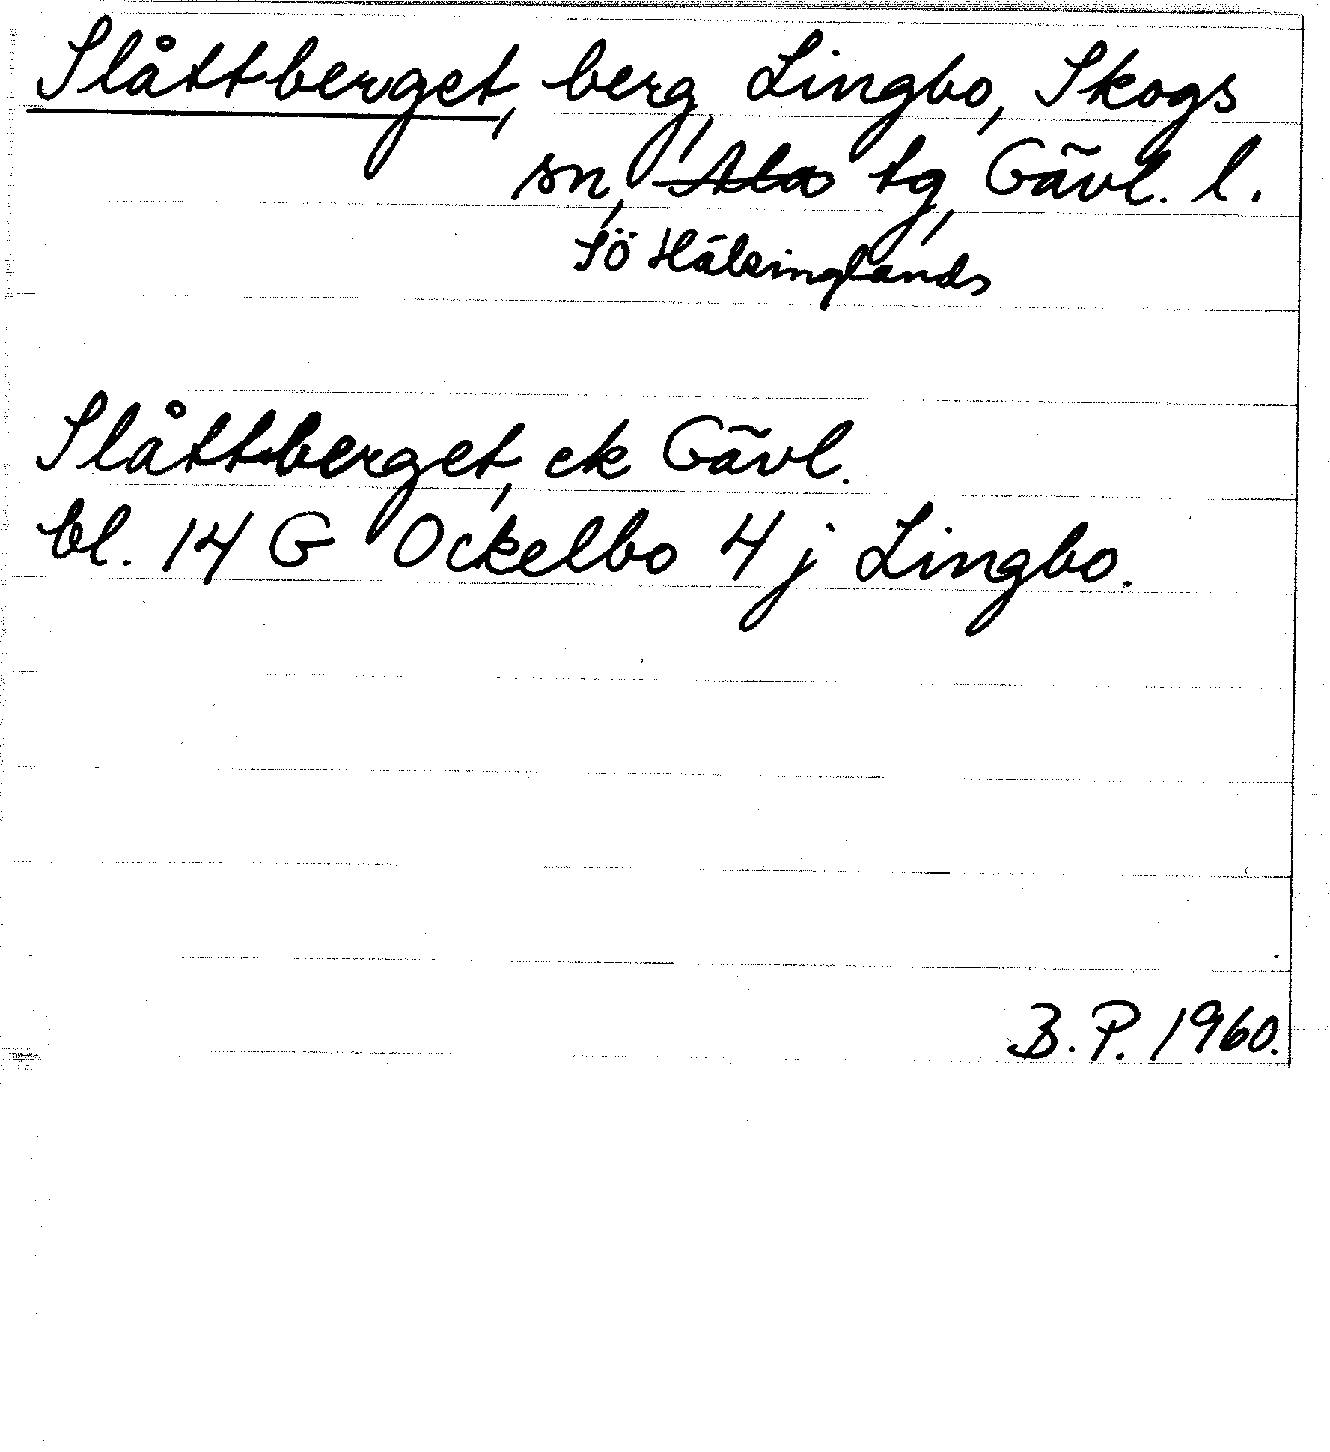 Slåttberget, berg, Lingbo, Skogs
sn, Ala tg, Gävl. l.
SÖ Hälsinglands
Slåttberget, ek Gävl.
bl. 14 G Ockelbo 4 j Lingbo.
B. P. 1960.